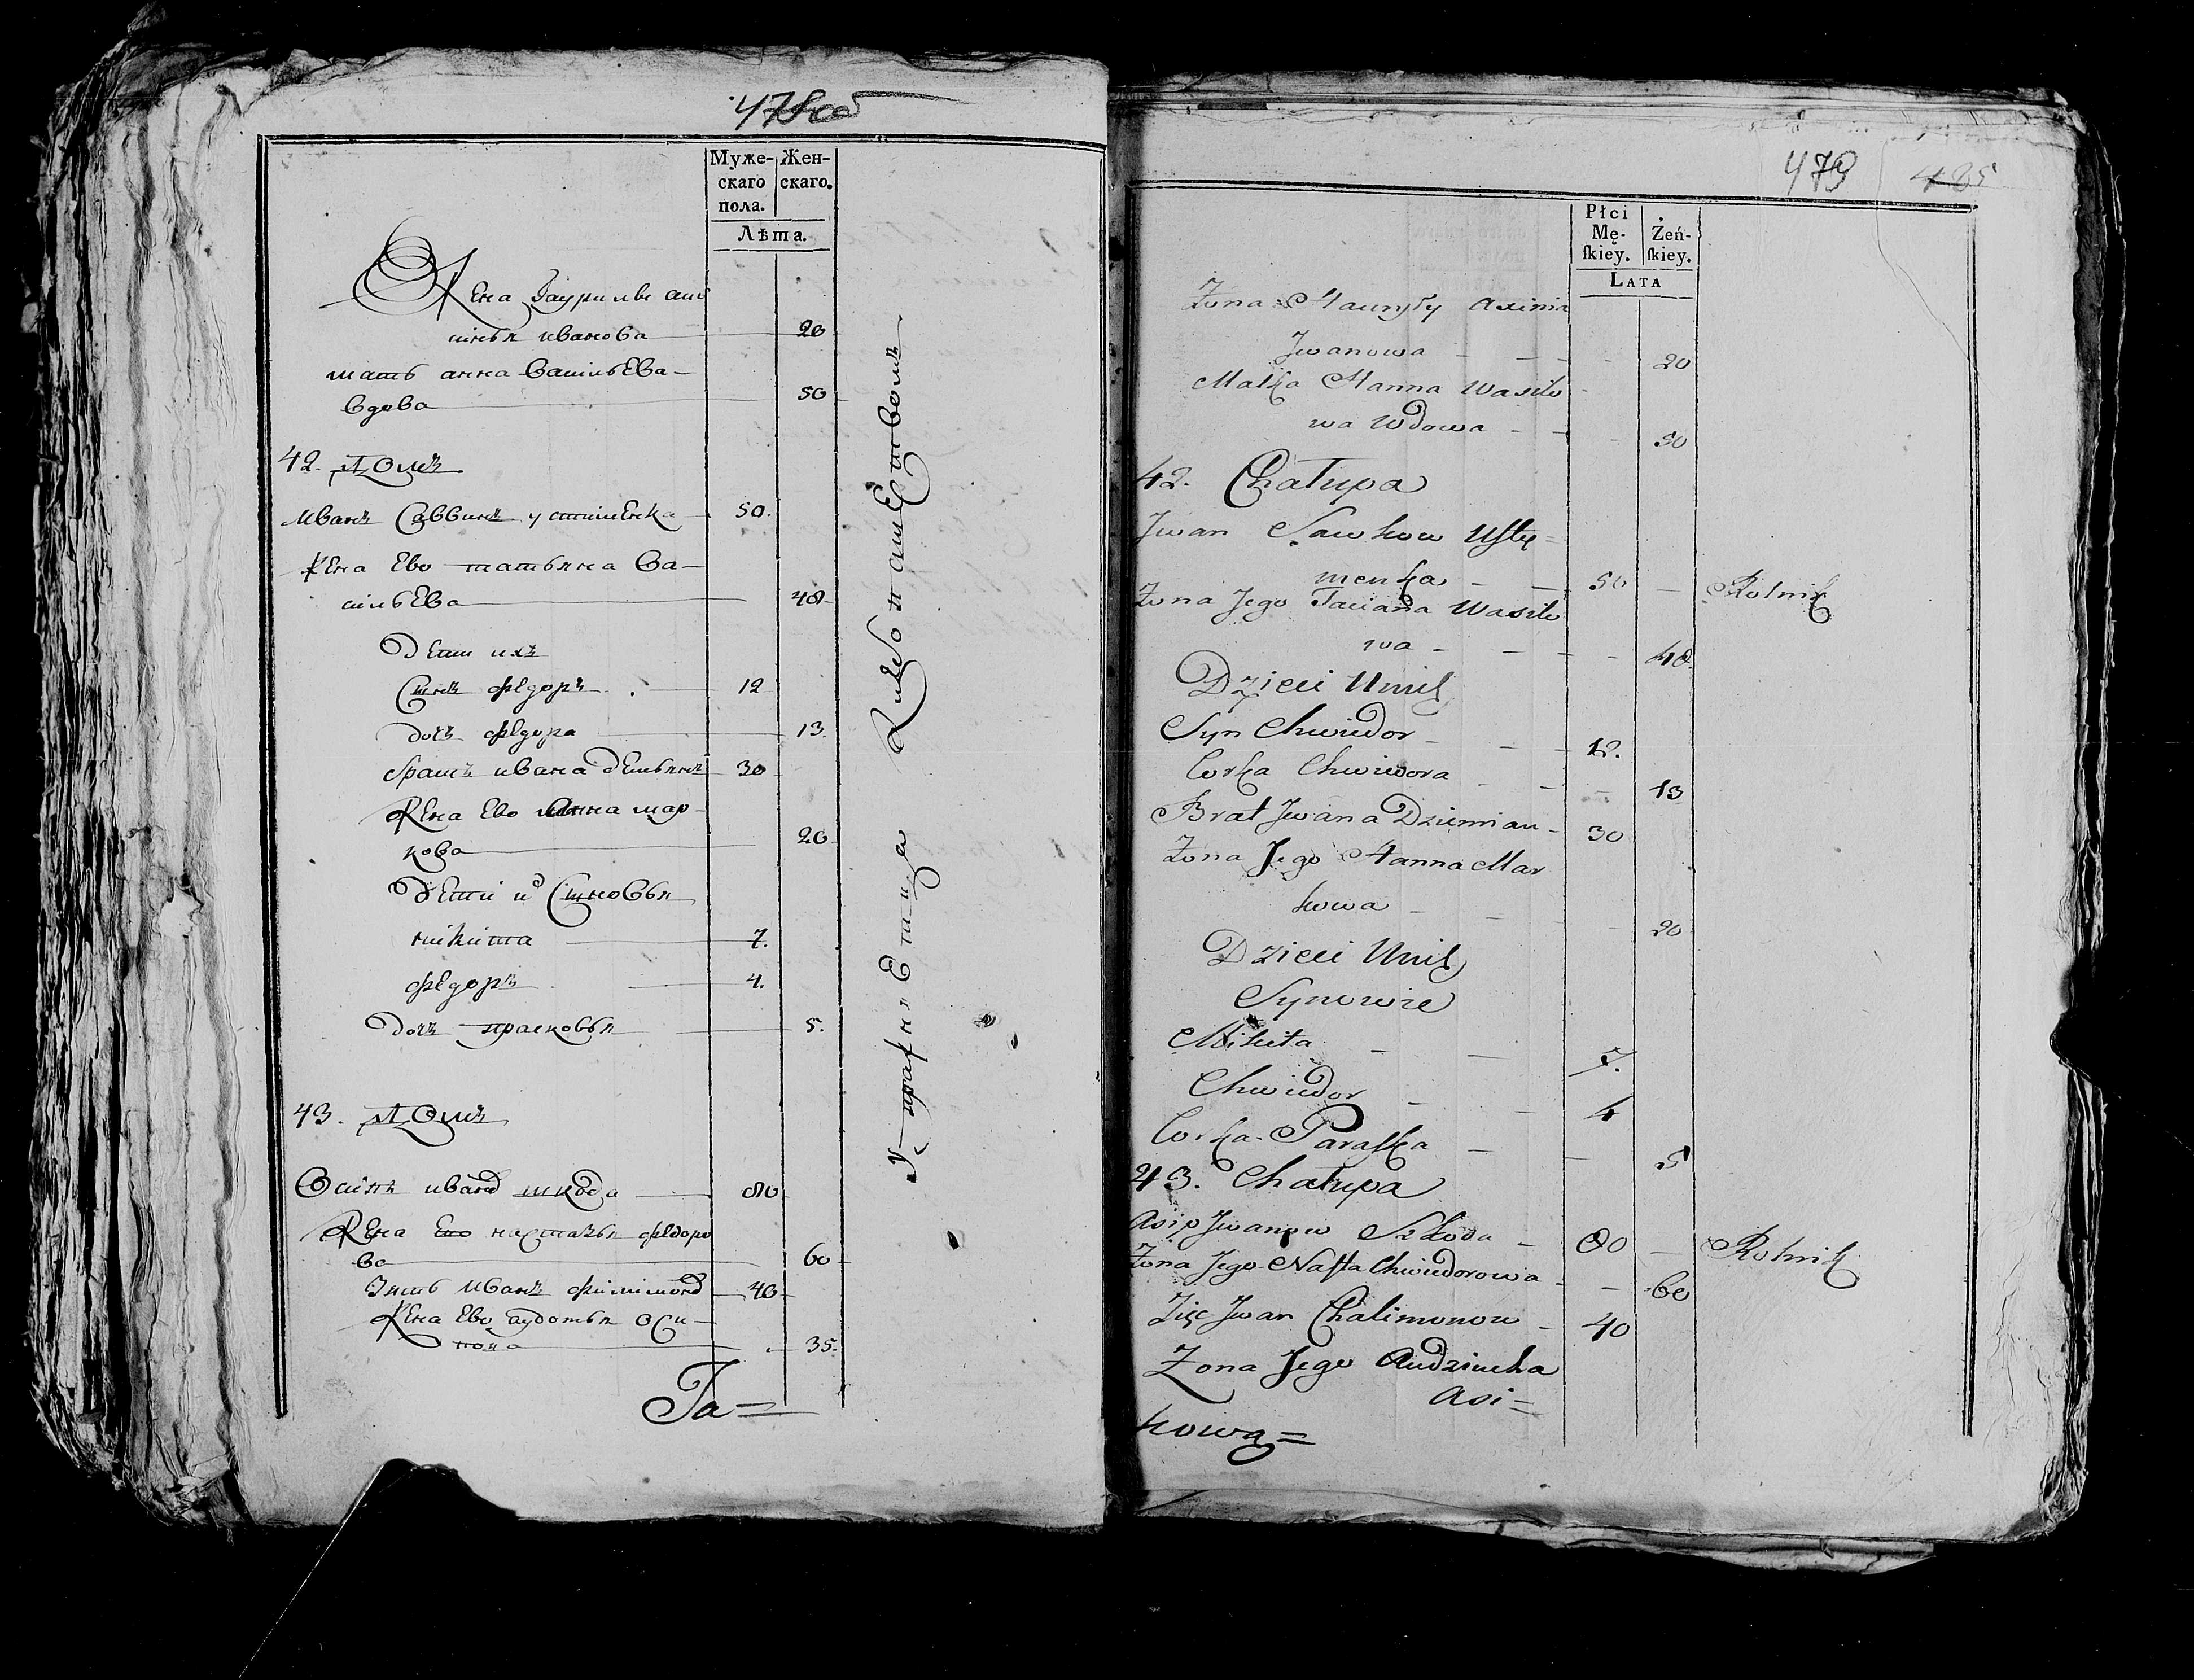 478об
Муже- Жен-
скаго скаго.
пола.
Лѣта.
Жена Гаурилы аксі
ньꙗ иванова 20
мать анна васильева
вдова 50
42. Домъ
Иванъ Саввинъ устименка 50.
Жена Ево татьꙗна ва-
сильева 48
Дети ихъ
Сынъ федоръ 12
дочъ федора 13
братъ ивана демьꙗнъ 30
Жена Ево анна мар-
кова 20
Дети ихъ Сыновьꙗ
никита 7.
федоръ 4.
дочъ прасковьꙗ 5.
43. Домъ
Осипъ иванов шкода 80
Жена Его настазьꙗ федоро
ва 60
Зять Иванъ филимонов 40
Жена Ево аудотьꙗ оси-
пова 35.
479 485
Płci Żeń-
Mę- ſkiey.
ſkiey.
LATA
Zona Hauryły Axinia
Jwanowa 20
Matka Hanna Wasilo
wa Wdowa 50
42. Chałupa
Jwan Sawkow Uſty=
menka 50 Rolnik
Zona Jego Taciana Wasilo
wa 48
Dzieci Jmiſ
Syn Chwiedor 12.
Corka Chwiedora 13
Brat Jwana Dziemian 30
Zona Jego Hanna Mar
kowa 20
Dzieci
Synowie
Mikita 7.
Chwiedor 4
Corka Paraſka 5
43. Chałupa
Asip Jwanow Szkoda 80 Rolnik
Zona Jego Naſta Chwiedorowa 60
Zięc Jwan Chalimonow 40
Zona Jego Audziucha
Asi=
kowa=